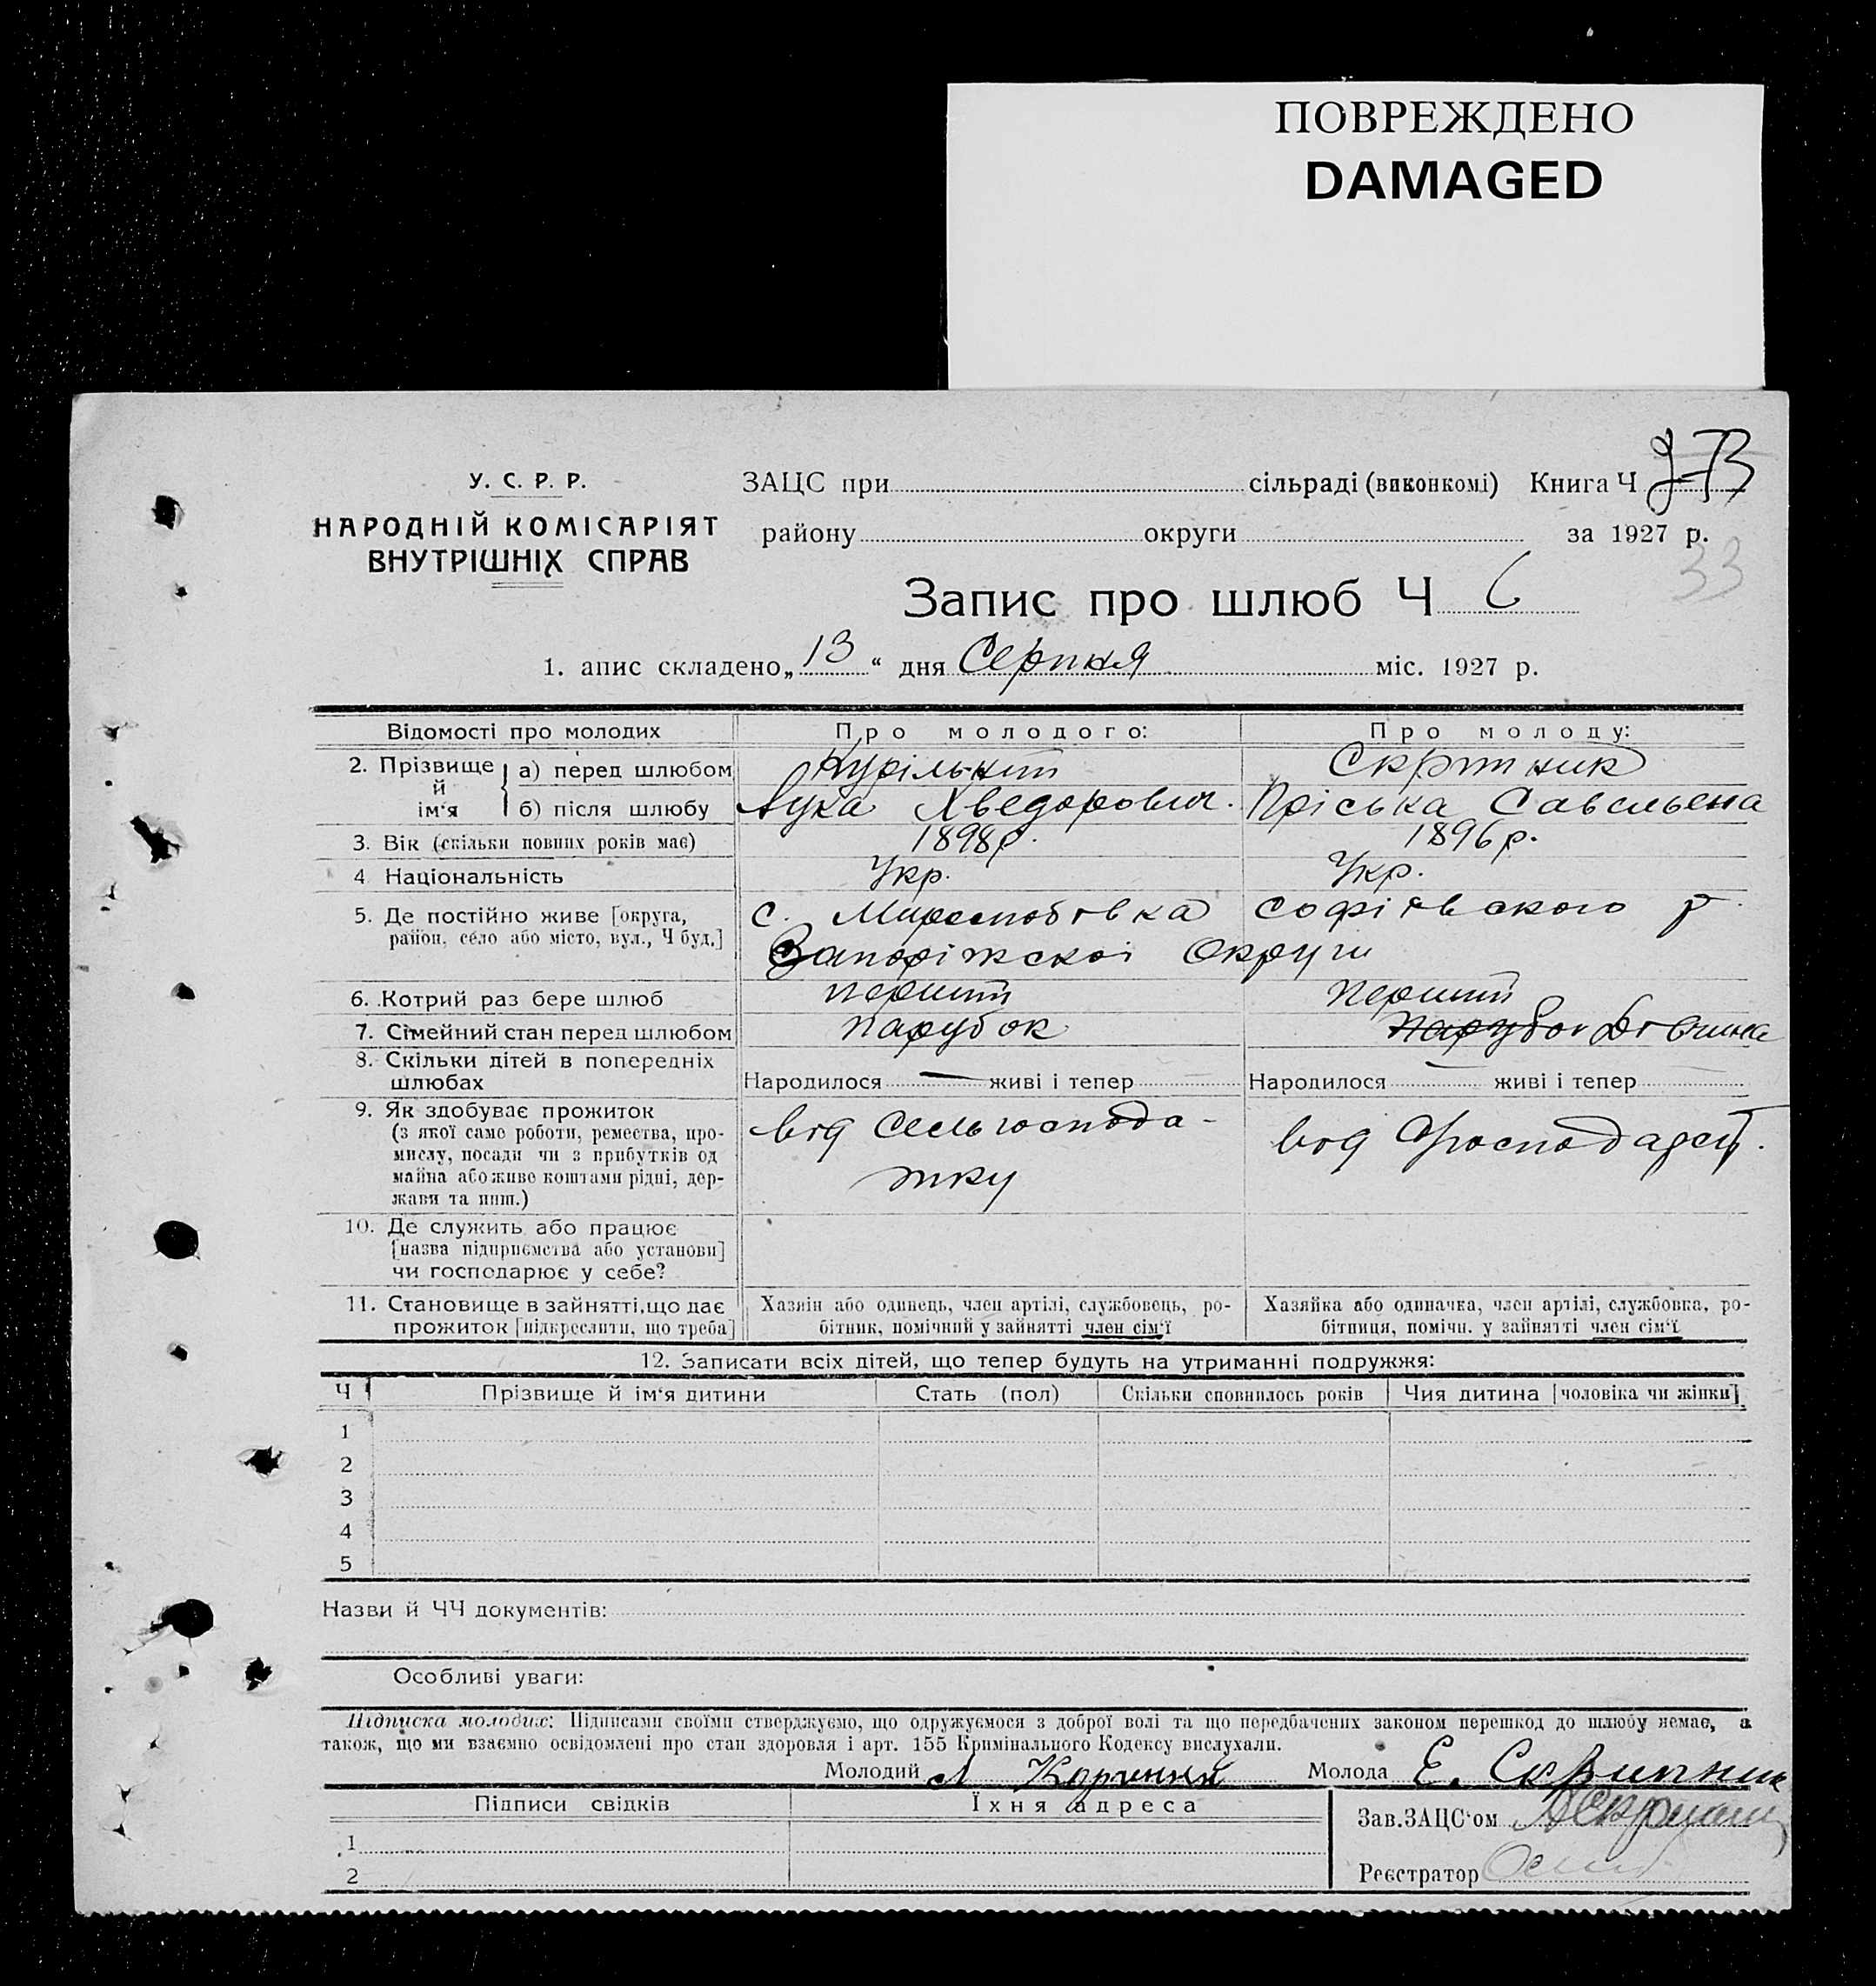 ПОВРЕЖДЕНО
DAMAGED
У. С. Р. Р.
НАРОДНІЙ КОМІСАРІЯТ
ВНУТРІШНІХ СПРАВ
ЗАЦС при сільраді (виконкомі) Книга Ч
району округи за 1927 р.
33
Запис про шлюб Ч 6
1. апис складено „13“ дня Серпня міс. 1927 р.
Відомості про молодих Про молодого: Про молоду:
2. Прізвище й ім'я
а) перед шлюбом
б) після шлюбу Лука Хведорович. Пріська Савельєна
3. Вік (скільки повних років має) 1898р. 1896р.
4 Національність Укр. Укр.
5. Де постійно живе [округа, район, село або місто, вул., Ч буд.]
с. Софіївського р.
Запоріжскоі Округи
6. Котрий раз бере шлюб перший перший
7. Сімейний стан перед шлюбом парубок парубок Дівчина
8. Скільки дітей в попередніх шлюбах
Народилося — живі і тепер Народилося — живі і тепер
9. Як здобуває прожиток
(з якої саме роботи, ремества, про-
мислу, посади чи з прибутків од
майна або живе коштами рідні, дер-
жави та инш.)
від від
10. Де служить або працює
[назва підприємства або установи]
чи господарює у себе?
11. Становище в зайнятті, що дає
прожиток [підкреслити, що треба]
Хазяїн або одинець, член артілі, службовець, ро-
бітник, помічний у зайнятті член сім'ї
Хазяйка або одиначка, член артілі, службовка, ро-
бітниця, помічн. у зайнятті член сім'ї
12. Записати всіх дітей, що тепер будуть на утриманні подружжя:
Ч Прізвище й ім'я дитини Стать (пол) Скільки сповнилось років Чия дитина [чоловіка чи жінки]
1
2
3
4
5
Назви й ЧЧ документів:
Особливі уваги:
Підписка молодих: Підписами своїми стверджуємо, що одружуємося з доброї волі та що передбачених законом перешкод до шлюбу немає, а
також, що ми взаємно освідомлені про стан здоровля і арт. 155 Кримінального Кодексу вислухали.
Молодий Л Молода Е. Скрипник
Підписи свідків Їхня адреса
Зав.ЗАЦС'ом
1
2
Реєстратор